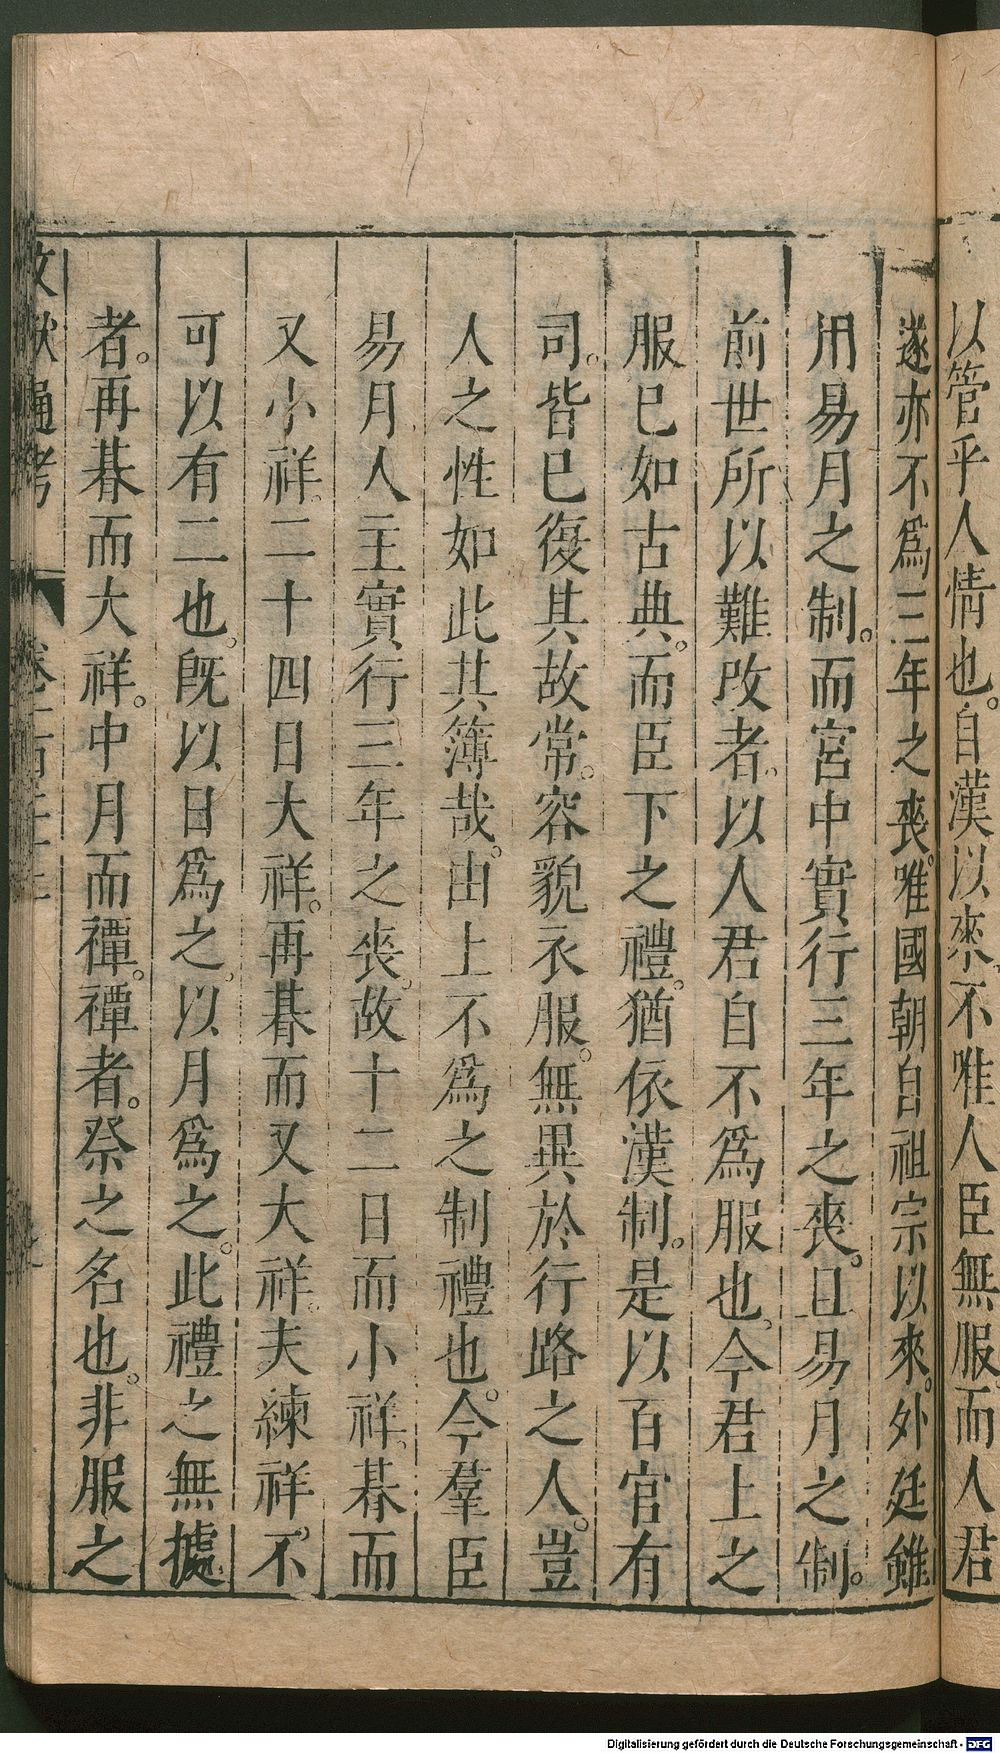 以管乎人情也。自漢以來。不唯人臣無服。而人君
遂亦不爲三年之喪。唯國朝自祖宗以來。外廷雖
用易月之制。而宮中實行三年之喪。且易月之制。
前世所以難改者。以人君自不爲服也。今君上之
服已如古典。而臣下之禮。猶依漢制。是以百官有
司。皆已復其故常。容貌衣服。無異於行路之人。豈
人之性如此其簿哉。由上不爲之制禮也。今羣臣
易月。人主實行三年之喪。故十二日而小祥。朞而
又小祥。二十四日大祥。再朞而又大祥。夫練祥。不
可以有二也。旣以日爲之。以月爲之。此禮之無據
者。再朞而大祥。中月而禫。禫者。祭之名也。非服之
文獻通考
Digitalisierung gefördert durch die Deutsche Forschungsgemeinschaft - DFG